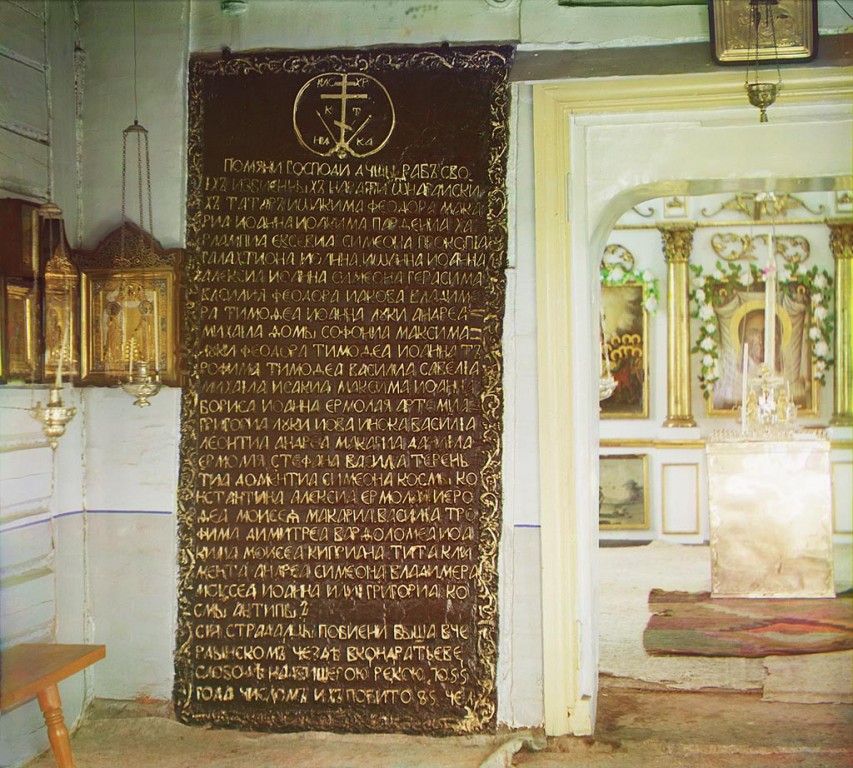 ІИС ХР
К Т
НИ КА
ПОМѦНИ ГОСПОДИ ДУШЫ РАБЪ СВО
ІХЪ ИЗБИЕННЫХЪ НА
ХЪ ТАТАРЪ ИѠАКИМА ФЕОДОРА МАКА
РИА ІОАННА ИОАКИМА ПАРѲЕНИА ХА
РЛАМПИА ЕѴСЕВИА СИМЕОНА ПРОКОПІА
ИОАННА ИѠАННА ИОАННА
АЛЕКСІА ІОАННА СИМЕОНА ГЕРАСИМА
ВАСИЛИЯ ФЕОДОРА ИАКОВА ВЛАДИМЕ
РА ТИМОѲЕА ИОАННА ЛУКИ АНДРЕА
МИХАИЛА ДОМЫ СОФОНИА МАКСИМА
ЛУКИ ФЕОДОРА ТИМОѲЕА ИОАННА ТЪ
РОФИМА ТИМОѲЕА ВАСИЛИА САВЕЛИА
МИХАИЛА ИСАКИА МАКСИМА ИОАННА
БОРИСА ИОАННА ЕРМОЛАЯ АРТЕМИА
ГРИГОРИА ЛУКИ ИОВА ВАСИЛИА
ЛЕОНТИА АНДРЕА МАКАРИА ДАНИИЛА
ЕРМОЛИЯ СТЕФАНА ВАСИЛИА ТЕРЕНЬ
ТИА ДОМЕНТИА СИМЕОНА КОСМЫ КО
НСТАНТИНА АЛЕКСИА ЕРМОЛАЯ ИЕРО
ѲЕА МОИСЕА МАКАРИА ВАСИЛИА ТРО
ФИМА ДИМИТРЕА ВАРѲОЛОМЕА ИОА
КИМА МОИСЕА КИПРИАНА ТИТА КЛИ
МЕНТА АНДРЕА СИМЕОНА ВЛАДИМЕРА
МОИСЕА ИОАННА ГРИГОРИА КО
СМЫ АНТИПЫ
СИИ СТРАДАЛЬЦЫ ПОБИЕНИ БЫША В ЧЕ
РДЫНСКОМЪ УЕЗДЕ В КОНДРАТЬЕВЕ
СЛОБОДѢ НАД ВИШЕРОЮ РЕКОЮ 7055
ГОДА ЧИСЛОМЪ ИХЪ ПОБИТО 85 ЧЕ